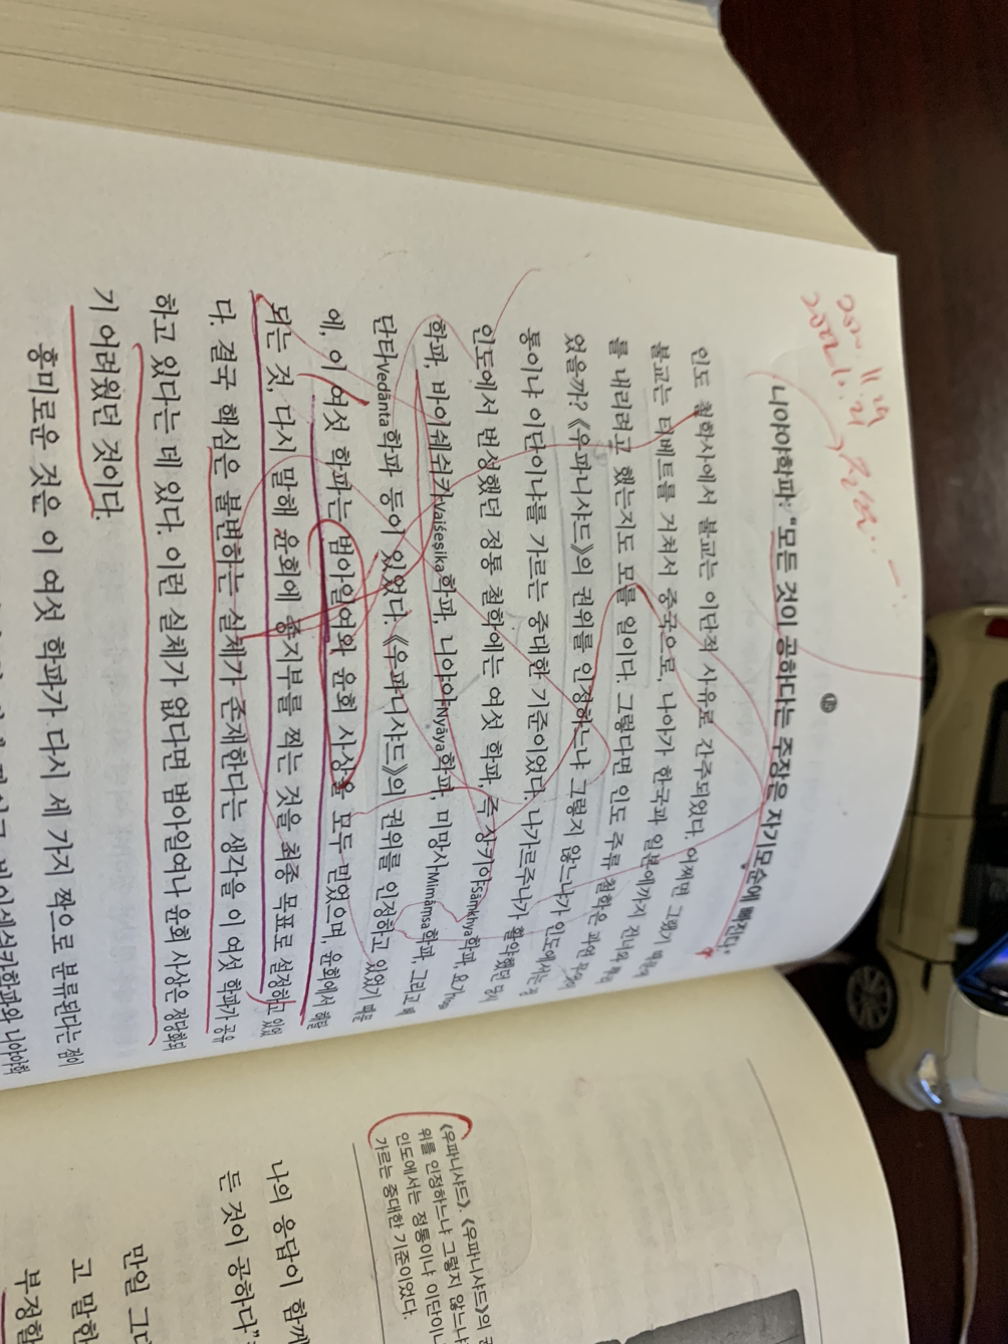 니야야학파: "모든 것이 공하다는 주장은 자기모순에 빠진다."
⑮
인도 철학사에서 불교는 이단적 사유로 간주되었다. 어쩌면 그랬기 때문에
불교는 티베트를 거쳐서 중국으로, 나아가 한국과 일본에까지 진녀와 뿌리
를 내리려고 했는지도 모를 일이다. 그렇다면 인도 주류 철학은 과연
었을까? 《우파니샤드》의 권위를 인정하느냐 그렇지 않느냐가 인도에서는 정
통이냐 이단이냐를 가르는 중대한 기준이었다. 나가르주나가 활약했던 당시
인도에서 번성했던 정통 철학에는 여섯 학파, 즉 상키야Sāṃkhya학파, 요가
학파, 바이쉐쉬카Vaiśeṣika학파, 니야야Nyāya학파, 미망사Mīmāṃsa학파, 그리고 베
단타Vedānta학파 등이 있었다. 《우파니샤드》의 권위를 인정하고 있었기 때문
에, 이 여섯 학파는 범아일여와 윤회 사상을 모두 믿었으며, 윤회에서 해탈
되는 것, 다시 말해 윤회에 종지부를 찍는 것을 최종 목표로 설정하고 있었
다. 결국 핵심은 불변하는 실체가 존재한다는 생각을 이 여섯 학파가 공유
하고 있다는 데 있다. 이런 실체가 없다면 범아일여나 윤회 사상은 정당화되
기 어려웠던 것이다.
흥미로운 것은 이 여섯 학파가 다시 세 가지 짝으로 분류된다는 점이
바이쉐쉬카학파와 니야야학
《우파니샤드》. 《우파니샤드》의 권
위를 인정하느냐 그렇지 않느냐
인도에서는 정통이냐 이단이냐
가르는 중대한 기준이었다.
나의 응답이 함께
든 것이 공하다"
만일 그대
고 말한
부정할